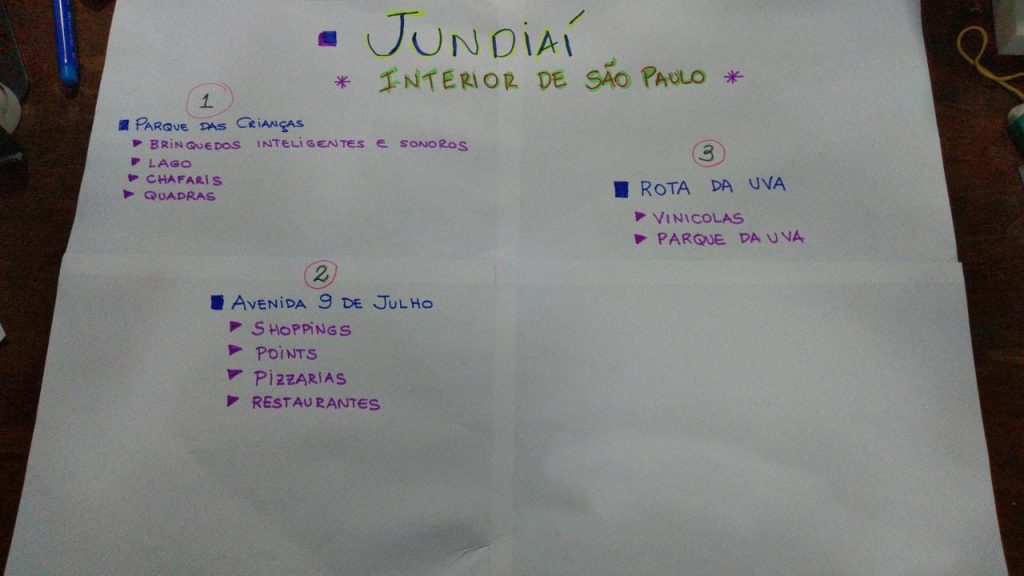 JUNDIAÍ
* INTERIOR DE SÃO PAULO *
1
PARQUE DAS CRIANÇAS
BRINQUEDOS INTELIGENTES E SONOROS
LAGO
CHAFARIS
QUADRAS
2
AVENIDA 9 DE JULHO
SHOPPINGS
POINTS
PIZZARIAS
RESTAURANTES
3
ROTA DA UVA
VINICOLAS
PARQUE DA UVA